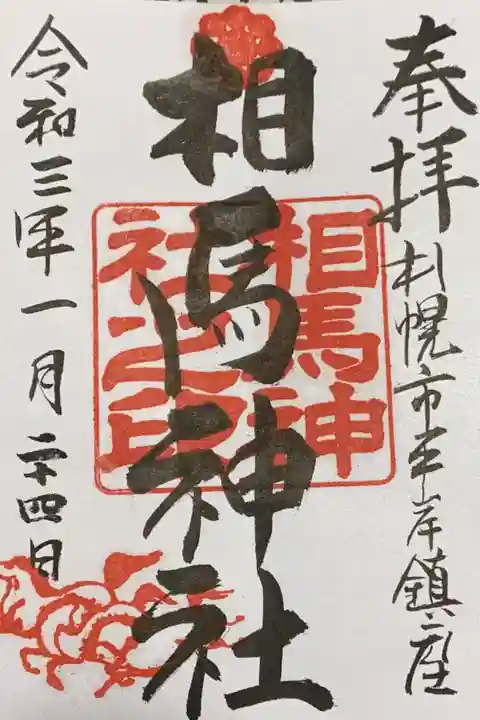 奉拝 札幌市平岸鎮座
相馬神社
相馬神
社之印
令和三年一月二十四日